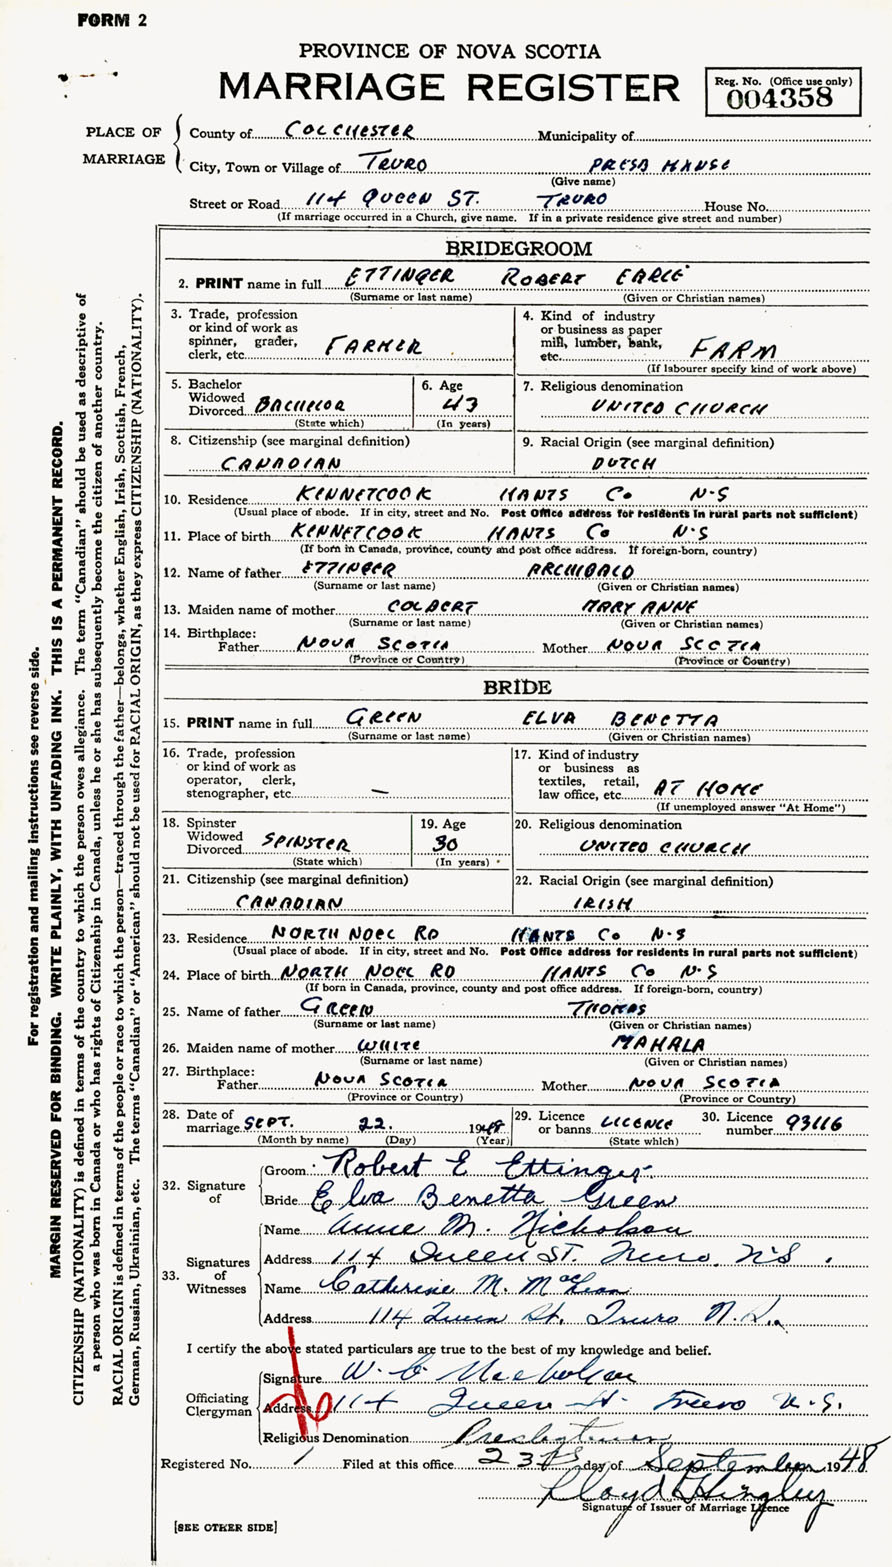 FORM 2
PROVINCE OF NOVA SCOTIA
MARRIAGE REGISTER
Reg. No. (Office use only)
004358
PLACE OF MARRIAGE
County of COLCHESTER Municipality of
City, Town or Village of TRURO PRESB MANSE
(Give name)
Street or Road 114 QUEEN ST. TRURO House No.
(If marriage occurred in a Church, give name. If in a private residence give street and number)
BRIDEGROOM
2. PRINT name in full ETTINGER ROBERT EARLE
(Surname or last name) (Given or Christian names)
3. Trade, profession or kind of work as spinner, grader, clerk, etc. FARMER
4. Kind of industry or business as paper mill, lumber, bank, etc. FARM
(If labourer specify kind of work above)
5. Bachelor Widowed Divorced BACHELOR
(State which)
6. Age 43
(In years)
7. Religious denomination
UNITED CHURCH
8. Citizenship (see marginal definition)
CANADIAN
9. Racial Origin (see marginal definition)
DUTCH
10. Residence KENNETCOOK HANTS Co N-S
(Usual place of abode. If in city, street and No. Post Office address for residents in rural parts not sufficient)
11. Place of birth KENNETCOOK HANTS Co N-S
(If born in Canada, province, county and post office address. If foreign-born, country)
12. Name of father ETTINGER ARCHIBALD
(Surname or last name) (Given or Christian names)
13. Maiden name of mother COLBERT MARY ANNE
(Surname or last name) (Given or Christian names)
14. Birthplace:
Father NOVA SCOTIA Mother NOVA SCOTIA
(Province or Country) (Province or Country)
BRIDE
15. PRINT name in full GREEN ELVA BENETTA
(Surname or last name) (Given or Christian names)
16. Trade, profession or kind of work as operator, clerk, stenographer, etc. —
17. Kind of industry or business as textiles, retail, law office, etc. AT HOME
(If unemployed answer "At Home")
18. Spinster Widowed Divorced SPINSTER
(State which)
19. Age 30
(In years)
20. Religious denomination
UNITED CHURCH
21. Citizenship (see marginal definition)
CANADIAN
22. Racial Origin (see marginal definition)
IRISH
23. Residence NORTH NOEL RD HANTS Co N-S
(Usual place of abode. If in city, street and No. Post Office address for residents in rural parts not sufficient)
24. Place of birth NORTH NOEL RD HANTS Co N-S
(If born in Canada, province, county and post office address. If foreign-born, country)
25. Name of father GREEN THOMAS
(Surname or last name) (Given or Christian names)
26. Maiden name of mother WHITE MAHALA
(Surname or last name) (Given or Christian names)
27. Birthplace:
Father NOVA SCOTIA Mother NOVA SCOTIA
(Province or Country) (Province or Country)
28. Date of marriage SEPT. 22. 1948
(Month by name) (Day) (Year)
29. Licence or banns LICENCE
(State which)
30. Licence number 93116
32. Signature of
Groom Robert E Ettinger
Bride Elva Benetta Green
33. Signatures of Witnesses
Name Anne M. Nicholson
Address 114 Queen St. Truro, N.S.
Name Catherine M. MacLean
Address 114 Queen St. Truro N.S.
I certify the above stated particulars are true to the best of my knowledge and belief.
Officiating Clergyman
Signature W. C. Nicholson
Address 114 Queen St Truro N.S.
Religious Denomination Presbyterian
Registered No. 1 Filed at this office 23rd day of September 1948
Signature of Issuer of Marriage Licence
[SEE OTHER SIDE]
For registration and mailing instructions see reverse side.
MARGIN RESERVED FOR BINDING. WRITE PLAINLY, WITH UNFADING INK. THIS IS A PERMANENT RECORD.
CITIZENSHIP (NATIONALITY) is defined in terms of the country to which the person owes allegiance. The term "Canadian" should be used as descriptive of
a person who was born in Canada or who has rights of Citizenship in Canada, unless he or she has subsequently become the citizen of another country.
RACIAL ORIGIN is defined in terms of the people or race to which the person—traced through the father—belongs, whether English, Irish, Scottish, French,
German, Russian, Ukrainian, etc. The terms "Canadian" or "American" should not be used for RACIAL ORIGIN, as they express CITIZENSHIP (NATIONALITY).